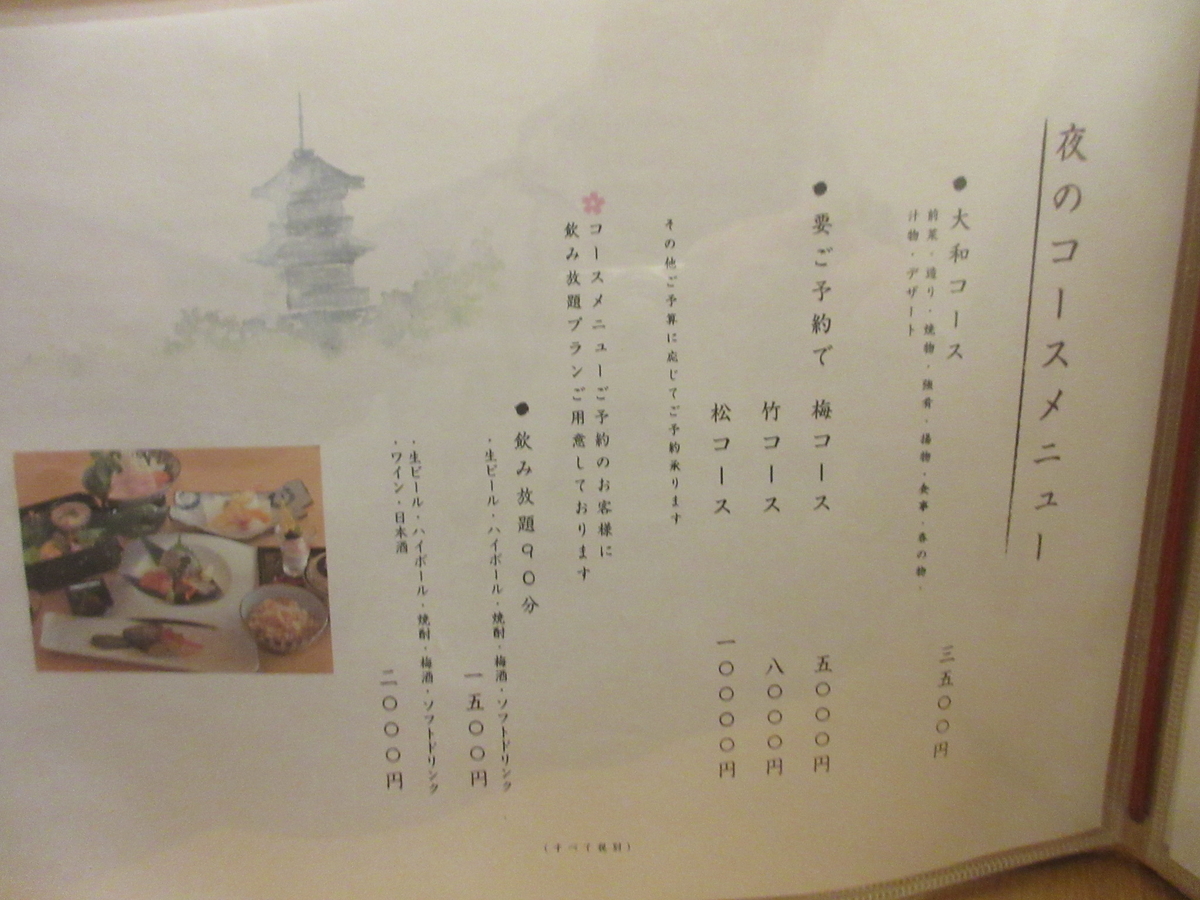 夜のコースメニュー
●大和コース
前菜・造り・焼物・強肴・揚物・食事・香の物・
汁物・デザート
三五〇〇円
●要ご予約で 梅コース 五〇〇〇円
竹コース 八〇〇〇円
松コース 一〇〇〇〇円
その他ご予算に応じてご予約承ります
コースメニューご予約のお客様に
飲み放題プランご用意しております
●飲み放題90分
・生ビール・ハイボール・焼酎・梅酒・ソフトドリンク
一五〇〇円
・生ビール・ハイボール・焼酎・梅酒・ソフトドリンク
・ワイン・日本酒
二〇〇〇円
(すべて税別)